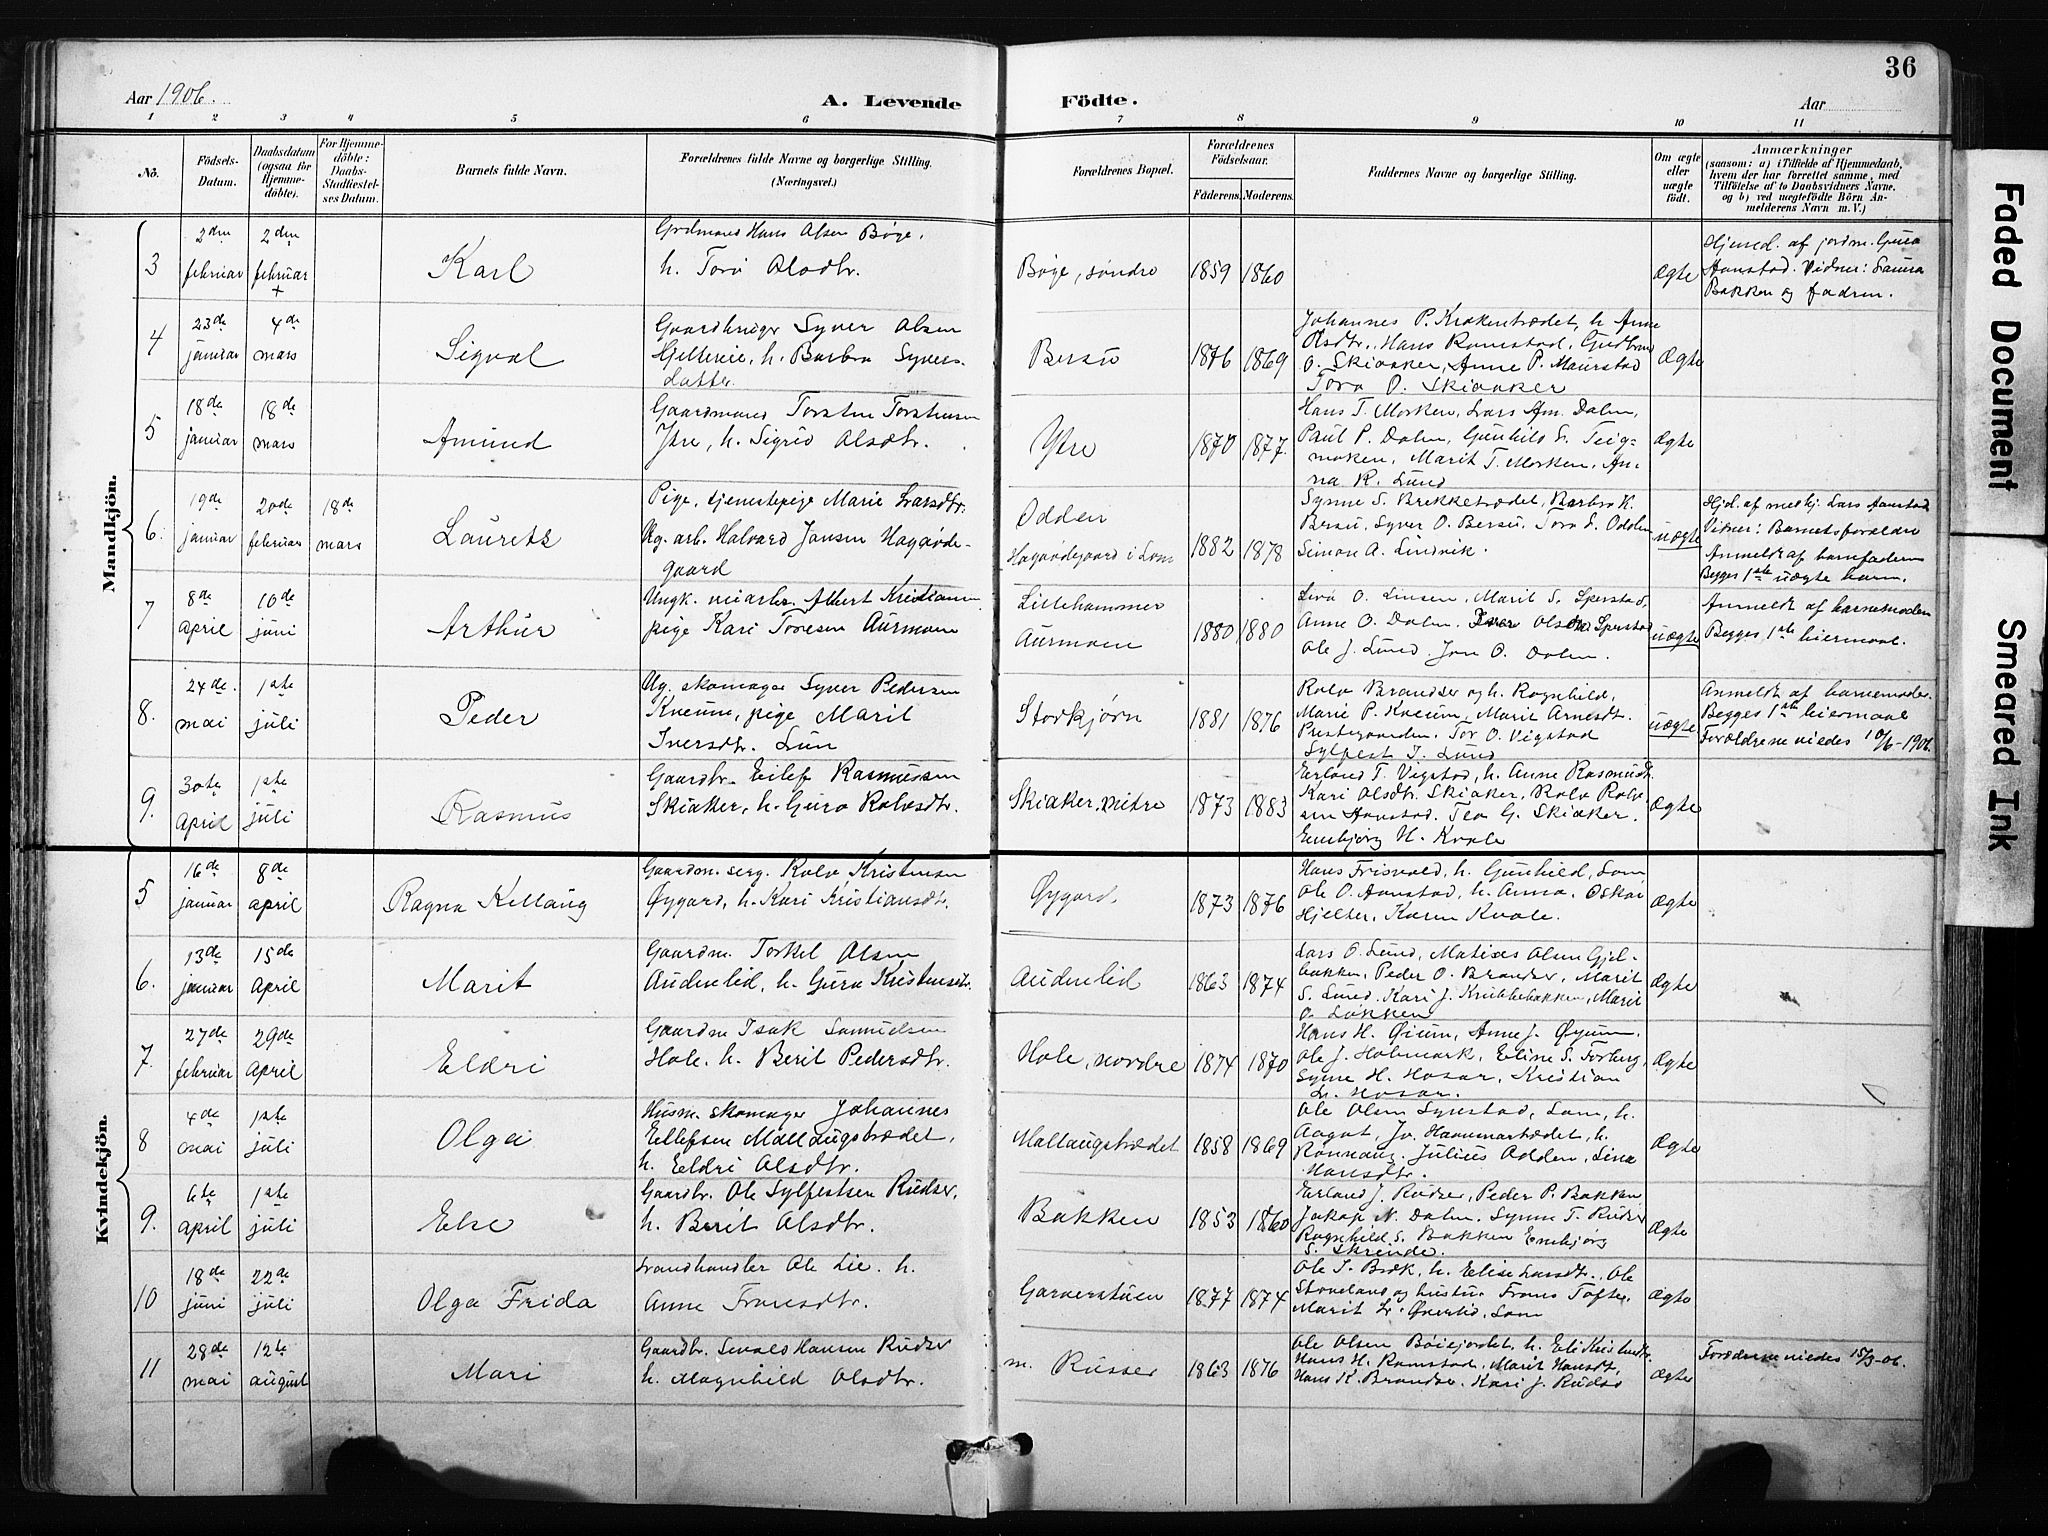 36
Aar 1906. A. Levende Födte. Aar
1 2 3 4 5 6 7 8 9 10 11
No. Födsels-Datum. Daabsdatum (ogsaa for Hjemmedöbte). For Hjemmedöbte: Daabs-Stadfæstelses Datum. Barnets fulde Navn. Forældrenes fulde Navne og borgerlige Stilling. (Næringsvei.) Forældrenes Bopæl. Forældrenes Födselsaar. Faderens. Moderens. Faddernes Navne og borgerlige Stilling. Om ægte eller uægte født. Anmærkninger (saasom: a) i Tilfælde af Hjemmedaab, hvem der har forrettet samme, med Tilföielse af to Daabsvidners Navne, og b) ved uægtefödte Börn Anmelderens Navn m. V.)
Mandkjön.
3 2den februar 2den februar +
Karl
Grdmand Hans Olsen Bøye.
h. Tora Olsdtr.
Bøye, søndre 1859 1860
Ægte
Hjemd. af jordm. Gura
Aanstad. Vidner: Laura
Bakken og fadren.
4 23de januar 4de mars
Sigval
Gaardbruger Syver Olsen
Gjeltveie, h. Barbra Syvers-
datter
Bersü 1876 1869
Johannes P. Krokentrædet, h Anne
Olsdtr., Hans Ramstad, Gudbrand
O. Skiaaker, Anne P. Maurstad
Tora O. Skiaaker
Ægte
5 18de januar 18de mars
Amund
Gaardmand Torsten Torstensen
Ytre, h. Sigrid Olsdtr.
Ytre 1870 1877.
Hans T. Morken, Lars Am. Dalen,
Paul P. Dalen, Gunhild S. Teig-
moken, Marit T. Morken, An-
na K. Lund
Ægte
6. 19de januar 20de februar 18de mars
Laurets
Pige, tjenestepige Marie Larsdtr.
Ug. arb. Halvard Jansen Hagaøde-
gaard
Odden
Hagaødegaard i Lom
1882 1878
Synne S. Brekketrædet, Barbra K.
Bersü, Syver O. Bersü, Tora S. Odden
Simon A. Lindvik.
uægte
Hjd. af medhj. Lars Aanstad
Vitner: Barnetsforældre
Anmeldt af barnefaderen
Begges 1ste uægte barn.
7 8de april 10de juni
Arthur
Ungk. veiarb. Albert Kristiansen
pige Kari Toresen Aurmoen
Lillehammer
Aurmoen
1880 1880
Siva O. Linsen, Marit S. Sperstad,
Anne O. Dalen. Iver Olsen Sperstad
Ole J. Lund. Jon O. Dalen.
uægte
Anmeldt af barnemoderen
Begges 1ste leiermaal.
8. 24de mai 1ste juli
Peder
Ug. skomager Syver Pedersen
Kveum, pige Marit
Iversdtr. Lun
Storkjørn 1881 1876
Rolv Brandser og h. Ragnhild,
Marie P. Kveum, Marit Arnesdtr.
Prestgarden. Tor O. Vigstad
Sylfest I. Lund
uægte
Anmeldt af barnemoder.
Begges 1ste leiermaal
Forældrene viedes 10/6-1906.
9. 30te April 1ste juli
Rasmus
Gaardbr. Eilef Rasmussen
Skiaker, h. Guro Rolvsdtr.
Skiaker, nitre 1873 1883
Erland T. Vigstad, h. Anne Rasmusdt.
Kari Olsdtr. Skiaker, Rolv Rolv-
sen Aanstad. Tea G. Skiaker.
Embjørg H. Kvale
Ægte
Kvindekjön.
5 16de januar 8de april
Ragna Kellaug
Gaardm. serg. Rolv Kristensen
Øygard, h. Kari Kristiansdtr.
Øygard. 1873 1876
Hans Frisvold, h. Gunhild, Lom
Ole O. Aanstad, h. Anna. Oskar
Hjelter, Karen Kvale.
Ægte
6. 13de januar 15de April
Marit
Gaardm. Torkel Olsen
Audenlid, h. Guro Kristensdtr.
Audenlid 1863 1874
Lars O. Lund, Matias Olsen Gjel-
bakken, Peder O. Brandser, Marit
S. Lund. Kari J. Krubbebakken, Marit
O. Løkken
Ægte
7. 27de februar 29de April
Eldri
Gaardm Isak Samuelsen
Hole. h. Berit Pedersdtr.
Hole, nordre 1874 1870
Hans H. Øium, Anne J. Øyum.
Ole J. Holmark, Eline S. Forberg,
Synne H. Hosar, Kristian
L. Hosar.
Ægte
8 4de mai 1ste juli
Olga
Husm. skomager Johannes
Ellefsen Mallaugstrædet,
h. Eldri Olsdtr.
Mallaugstrædet 1858 1869
Ole Olsen Synstad, Lom, h.
Aagot, Jo Hammartrædet, h.
Rønnaug. Julius Odden, Lina
Hansdtr.
Ægte
9. 6te april 1ste juli
Else
Gaardbr. Ole Sylfestsen Rudser,
h. Berit Olsdtr.
Bakken 1853 1860
Erland J. Rudser, Peder P. Bakken
Jakop N. Dalen. Synne T. Rudser
Ragnhild S. Bakken Embjørg
S. Skrinde.
Ægte
10 18de juni 22de juli
Olga Frida
Landhandler Ole Lie. h.
Anne Fransdtr.
Garverstuen 1877 1874
Ole T. Bræk, h. Elise Larsdtr., Ole
Stoveland og hustru. Frans Tofte,
Marit L. Øverlid, Lom
Ægte
11 28de mai 12te august
Mari
Gaardbr. Sevald Hansen Rudser
h. Magnhild Olsdtr.
m. Russer 1863 1876
Ole Olsen Bøiejordet, h. Eli Kristensdtr.
Hans H. Ramstad, Marit Hansdt,
Hans K. Brandser. Kari J. Rudsø
Ægte
Forældrene viedes 15/3-06.
Faded Document
Smeared Ink